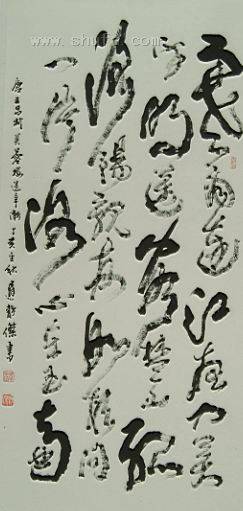 寒雨連江夜入吳
平明送客楚山孤
洛陽親友如相問
一片冰心在玉壺
唐王昌齡芙蓉樓送辛漸丁亥秋傑書